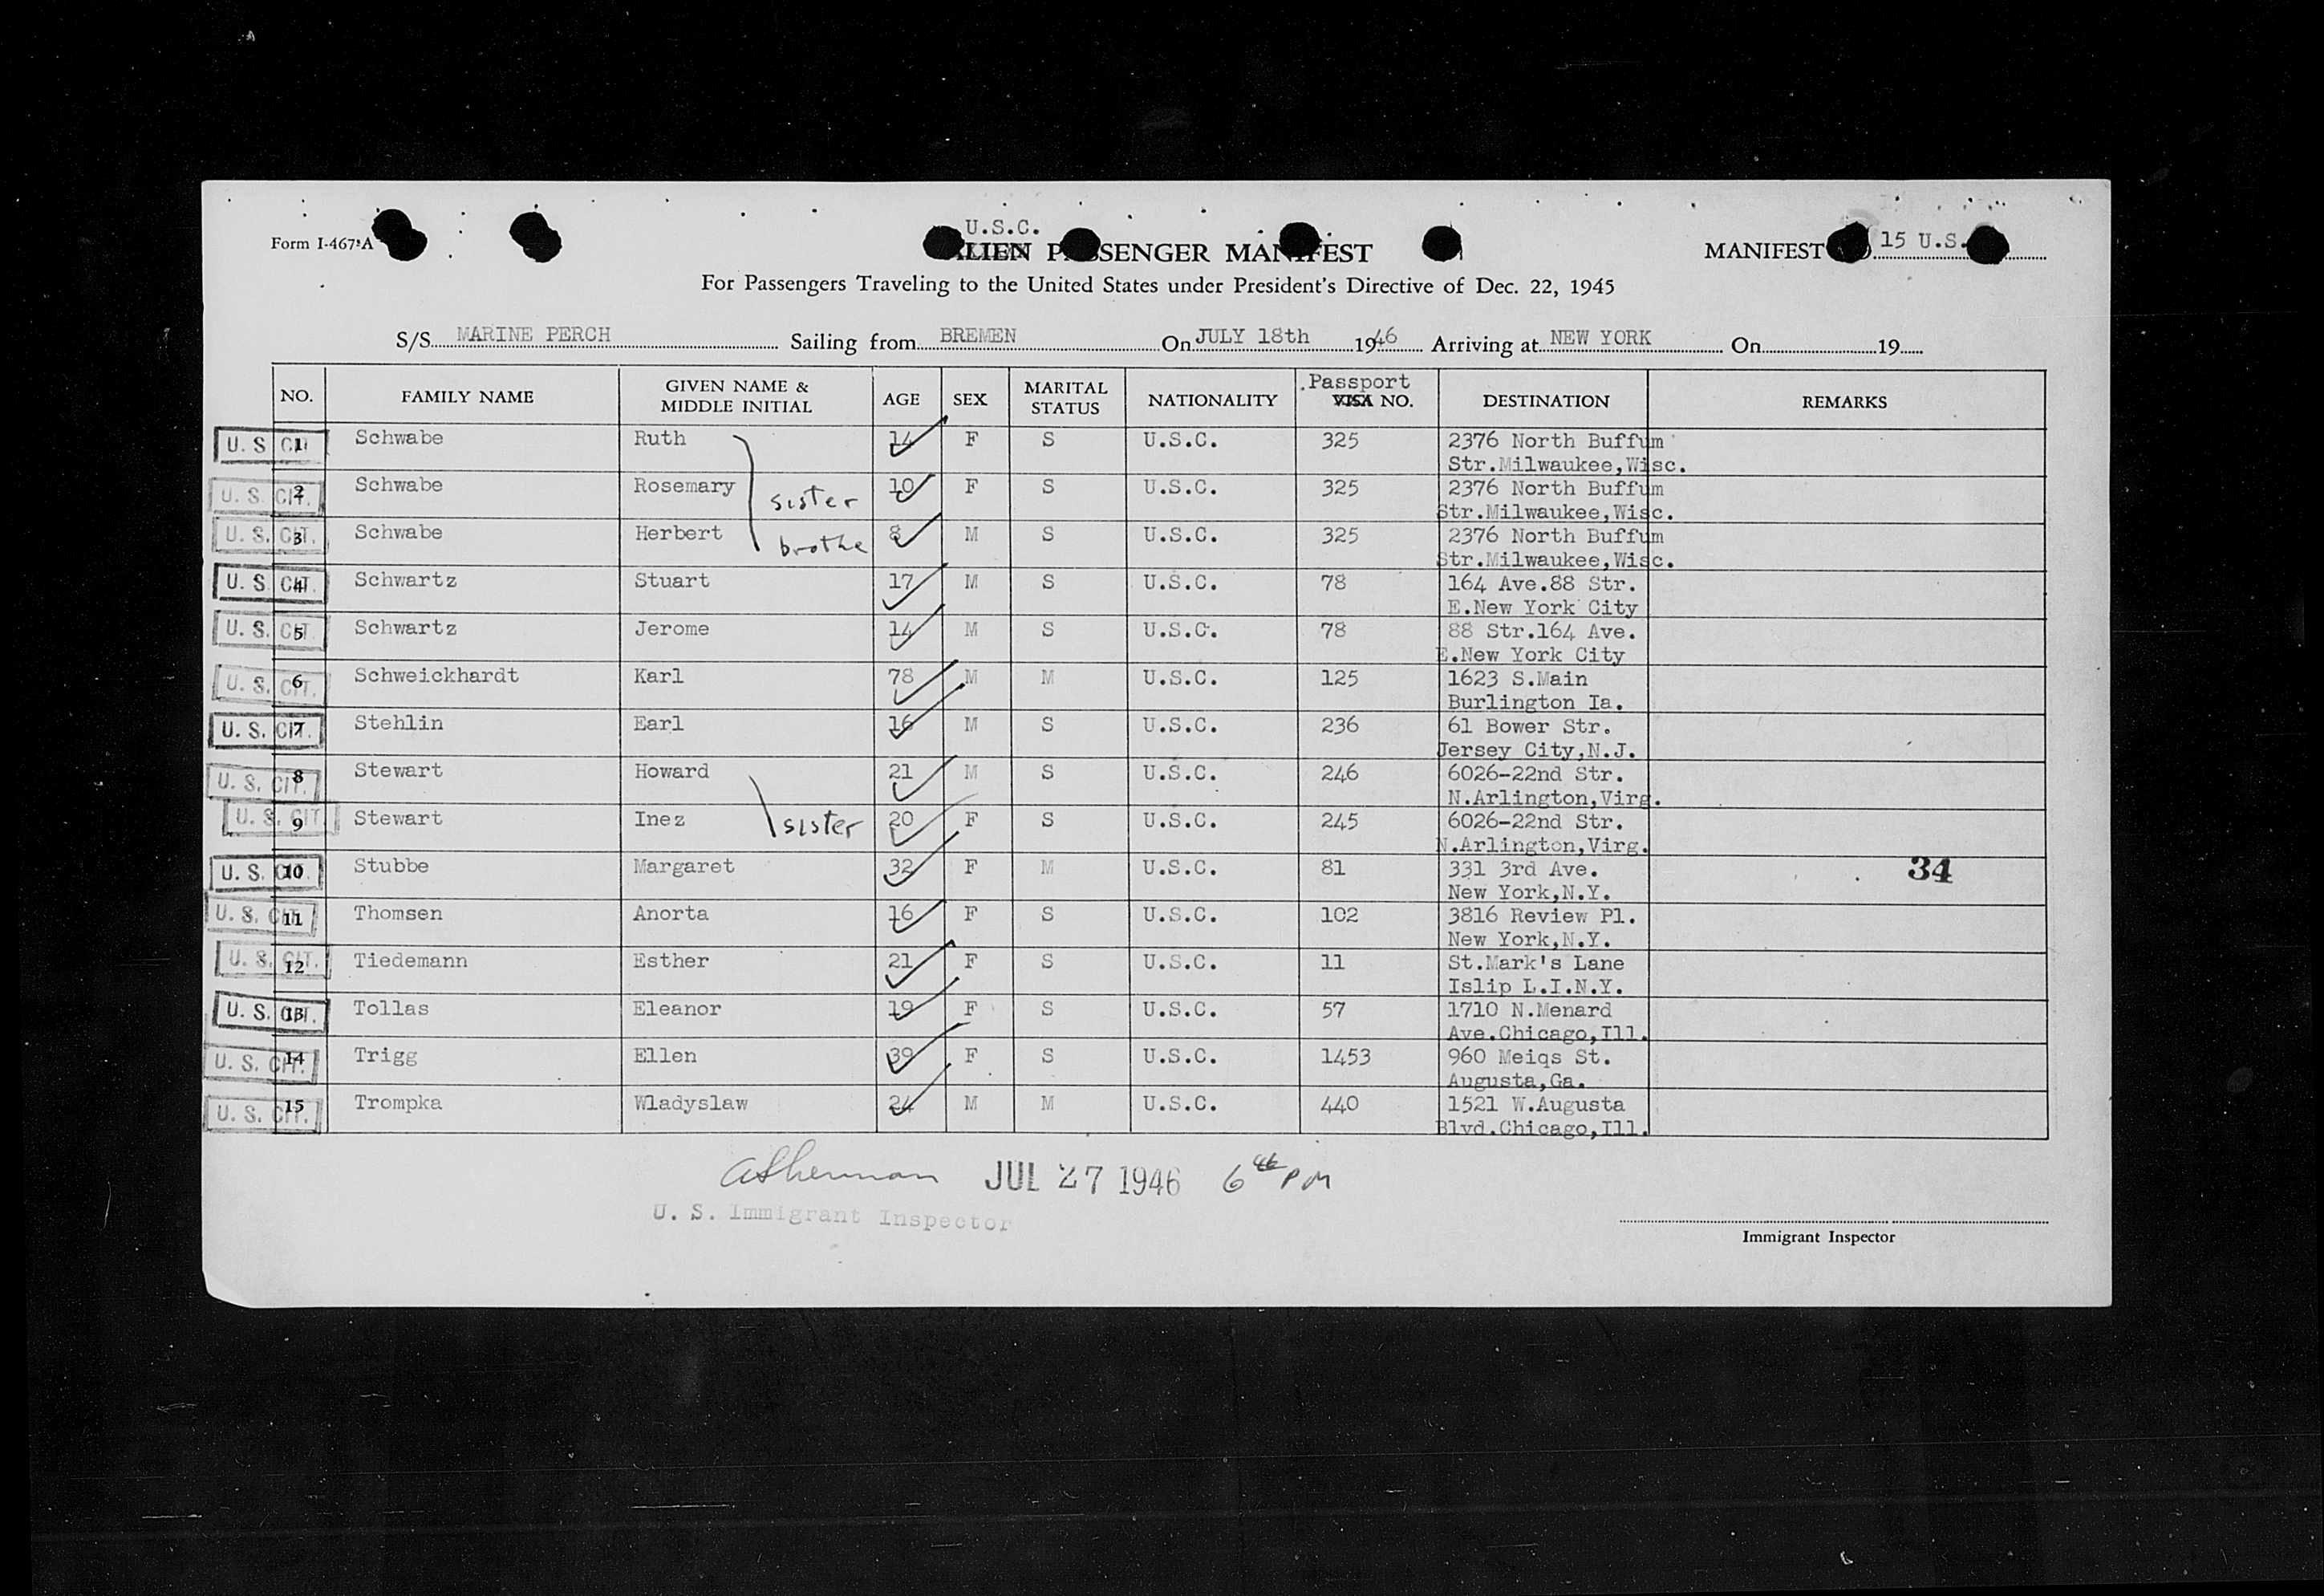 U.S.C.
Form I-467-A ALIEN PASSENGER MANIFEST MANIFEST 15 U.S.
For Passengers Traveling to the United States under President's Directive of Dec. 22, 1945
S/S MARINE PERCH Sailing from BREMEN On JULY 18th 1946 Arriving at NEW YORK On 19
NO. FAMILY NAME GIVEN NAME & MIDDLE INITIAL AGE SEX MARITAL STATUS NATIONALITY Passport VISA NO. DESTINATION REMARKS
U. S. CIT. 1 Schwabe Ruth 14 F S U.S.C. 325 2376 North Buffum
Str.Milwaukee,Wisc.
U. S. CIT. 2 Schwabe Rosemary sister 10 F S U.S.C. 325 2376 North Buffum
Str.Milwaukee,Wisc.
U. S. CIT. 3 Schwabe Herbert brothe 8 M S U.S.C. 325 2376 North Buffum
Str.Milwaukee,Wisc.
U. S. CIT. 4 Schwartz Stuart 17 M S U.S.C. 78 164 Ave.88 Str.
E.New York City
U. S. CIT. 5 Schwartz Jerome 14 M S U.S.C. 78 88 Str.164 Ave.
E.New York City
U. S. CIT. 6 Schweickhardt Karl 78 M M U.S.C. 125 1623 S.Main
Burlington Ia.
U. S. CIT. 7 Stehlin Earl 16 M S U.S.C. 236 61 Bower Str.
Jersey City,N.J.
U. S. CIT. 8 Stewart Howard 21 M S U.S.C. 246 6026-22nd Str.
N.Arlington,Virg.
U. S. CIT. 9 Stewart Inez sister 20 F S U.S.C. 245 6026-22nd Str.
N.Arlington,Virg.
U. S. CIT. 10 Stubbe Margaret 32 F M U.S.C. 81 331 3rd Ave. 34
New York,N.Y.
U. S. CIT. 11 Thomsen Anorta 16 F S U.S.C. 102 3816 Review Pl.
New York,N.Y.
U. S. CIT. 12 Tiedemann Esther 21 F S U.S.C. 11 St.Mark's Lane
Islip L.I.N.Y.
U. S. CIT. 13 Tollas Eleanor 19 F S U.S.C. 57 1710 N.Menard
Ave.Chicago,Ill.
U. S. CIT. 14 Trigg Ellen 39 F S U.S.C. 1453 960 Meiqs St.
Augusta,Ga.
U. S. CIT. 15 Trompka Wladyslaw 24 M M U.S.C. 440 1521 W.Augusta
Blvd.Chicago,Ill.
ASherman JUL 27 1946 6 PM
U. S. Immigrant Inspector
Immigrant Inspector